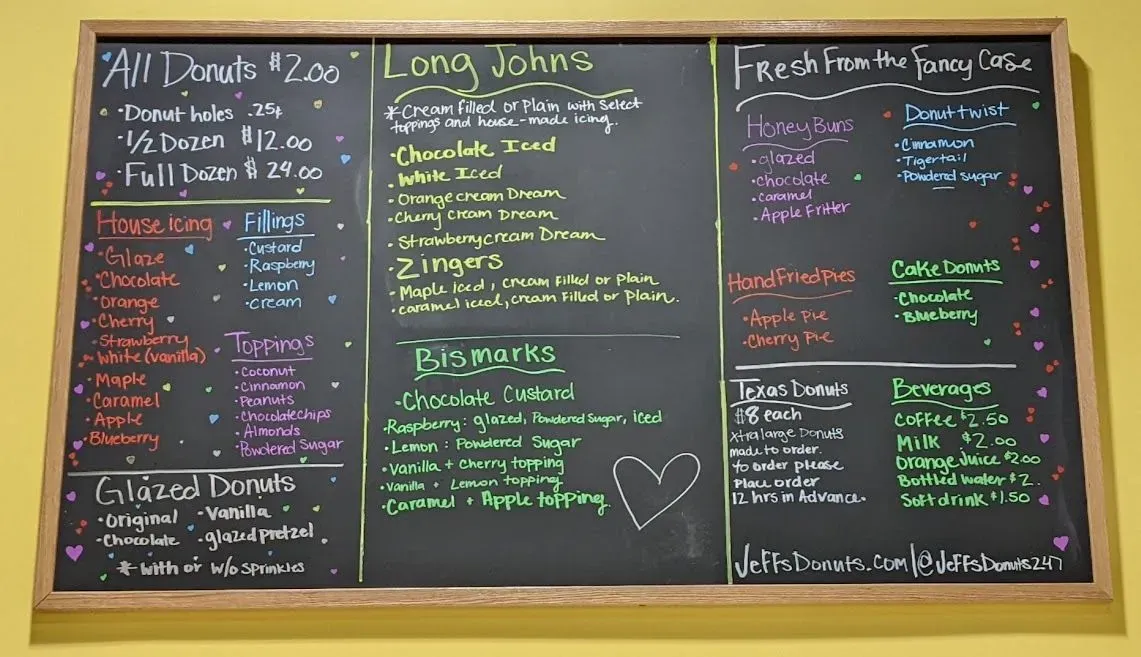 All Donuts $2.00
• Donut holes .25¢
• 1/2 Dozen $12.00
• Full Dozen $24.00
House icing
• Glaze
• Chocolate
• Orange
• Cherry
• Strawberry
• White (vanilla)
• Maple
• Caramel
• Apple
• Blueberry
Fillings
• Custard
• Raspberry
• Lemon
• Cream
Toppings
• Coconut
• Cinnamon
• Peanuts
• Chocolate chips
• Almonds
• Powdered Sugar
Glazed Donuts
• Original
• Chocolate
• Vanilla
• glazed pretzel
* with or w/o sprinkles
Long Johns
* Cream filled or Plain with Select
toppings and house-made icing.
• Chocolate Iced
• White Iced
• Orange cream Dream
• Cherry Cream Dream
• Strawberry cream Dream
• Zingers
• Maple iced, cream filled or Plain
• caramel iced, cream filled or Plain.
Bismarks
• Chocolate Custard
• Raspberry: glazed, Powdered Sugar, iced
• Lemon: Powdered Sugar
• Vanilla + Cherry topping
• Vanilla + Lemon topping
• Caramel + Apple topping
Fresh From the Fancy Case
Honey Buns
• glazed
• chocolate
• caramel
• Apple Fritter
Donut twist
• Cinnamon
• Tigertail
• Powdered sugar
Hand Fried Pies
• Apple Pie
• Cherry Pie
Cake Donuts
• Chocolate
• Blueberry
Texas Donuts
$8 each
xtra large Donuts
made to order.
to order please
Place order
12 hrs in Advance.
Beverages
Coffee $2.50
Milk $2.00
Orange Juice $2.00
Bottled water $2.
Soft drink $1.50
JeffsDonuts.com/@JeffsDonuts247